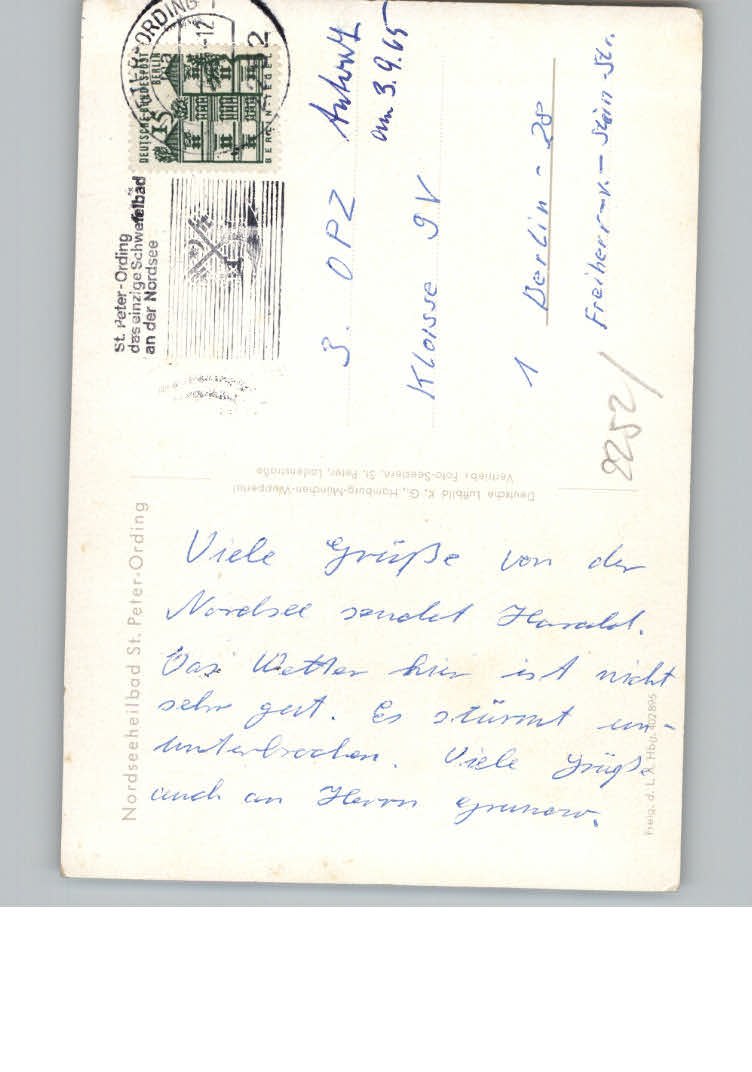 Nordseeheilbad St. Peter-Ording
Viele Grüße von der
Nordsee sendet Harald.
Das Wetter hier ist nicht
sehr gut. Es stürmt un-
unterbrochen. Viele Grüße
auch an Herrn Grunow.
Freig. d. L. A. Hbg. 402895
Deutsche Luftbild K. G., Hamburg-München-Wuppertal
Vertrieb: Foto-Seestern, St. Peter, Ladenstraße
St. Peter-Ording
das einzige Schwefelbad
an der Nordsee
DEUTSCHE BUNDESPOST
BERLIN
15
BERLIN-TEGEL
Antwort
am 3.9.65
3. OPZ
Klasse 9V
1 Berlin - 28
Freiherr-v.-Stein-Str.
2252/